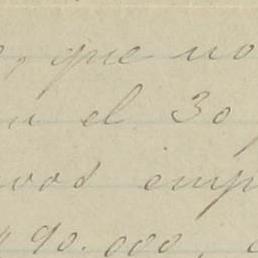 , que no
el 30
vos emp
90.000,